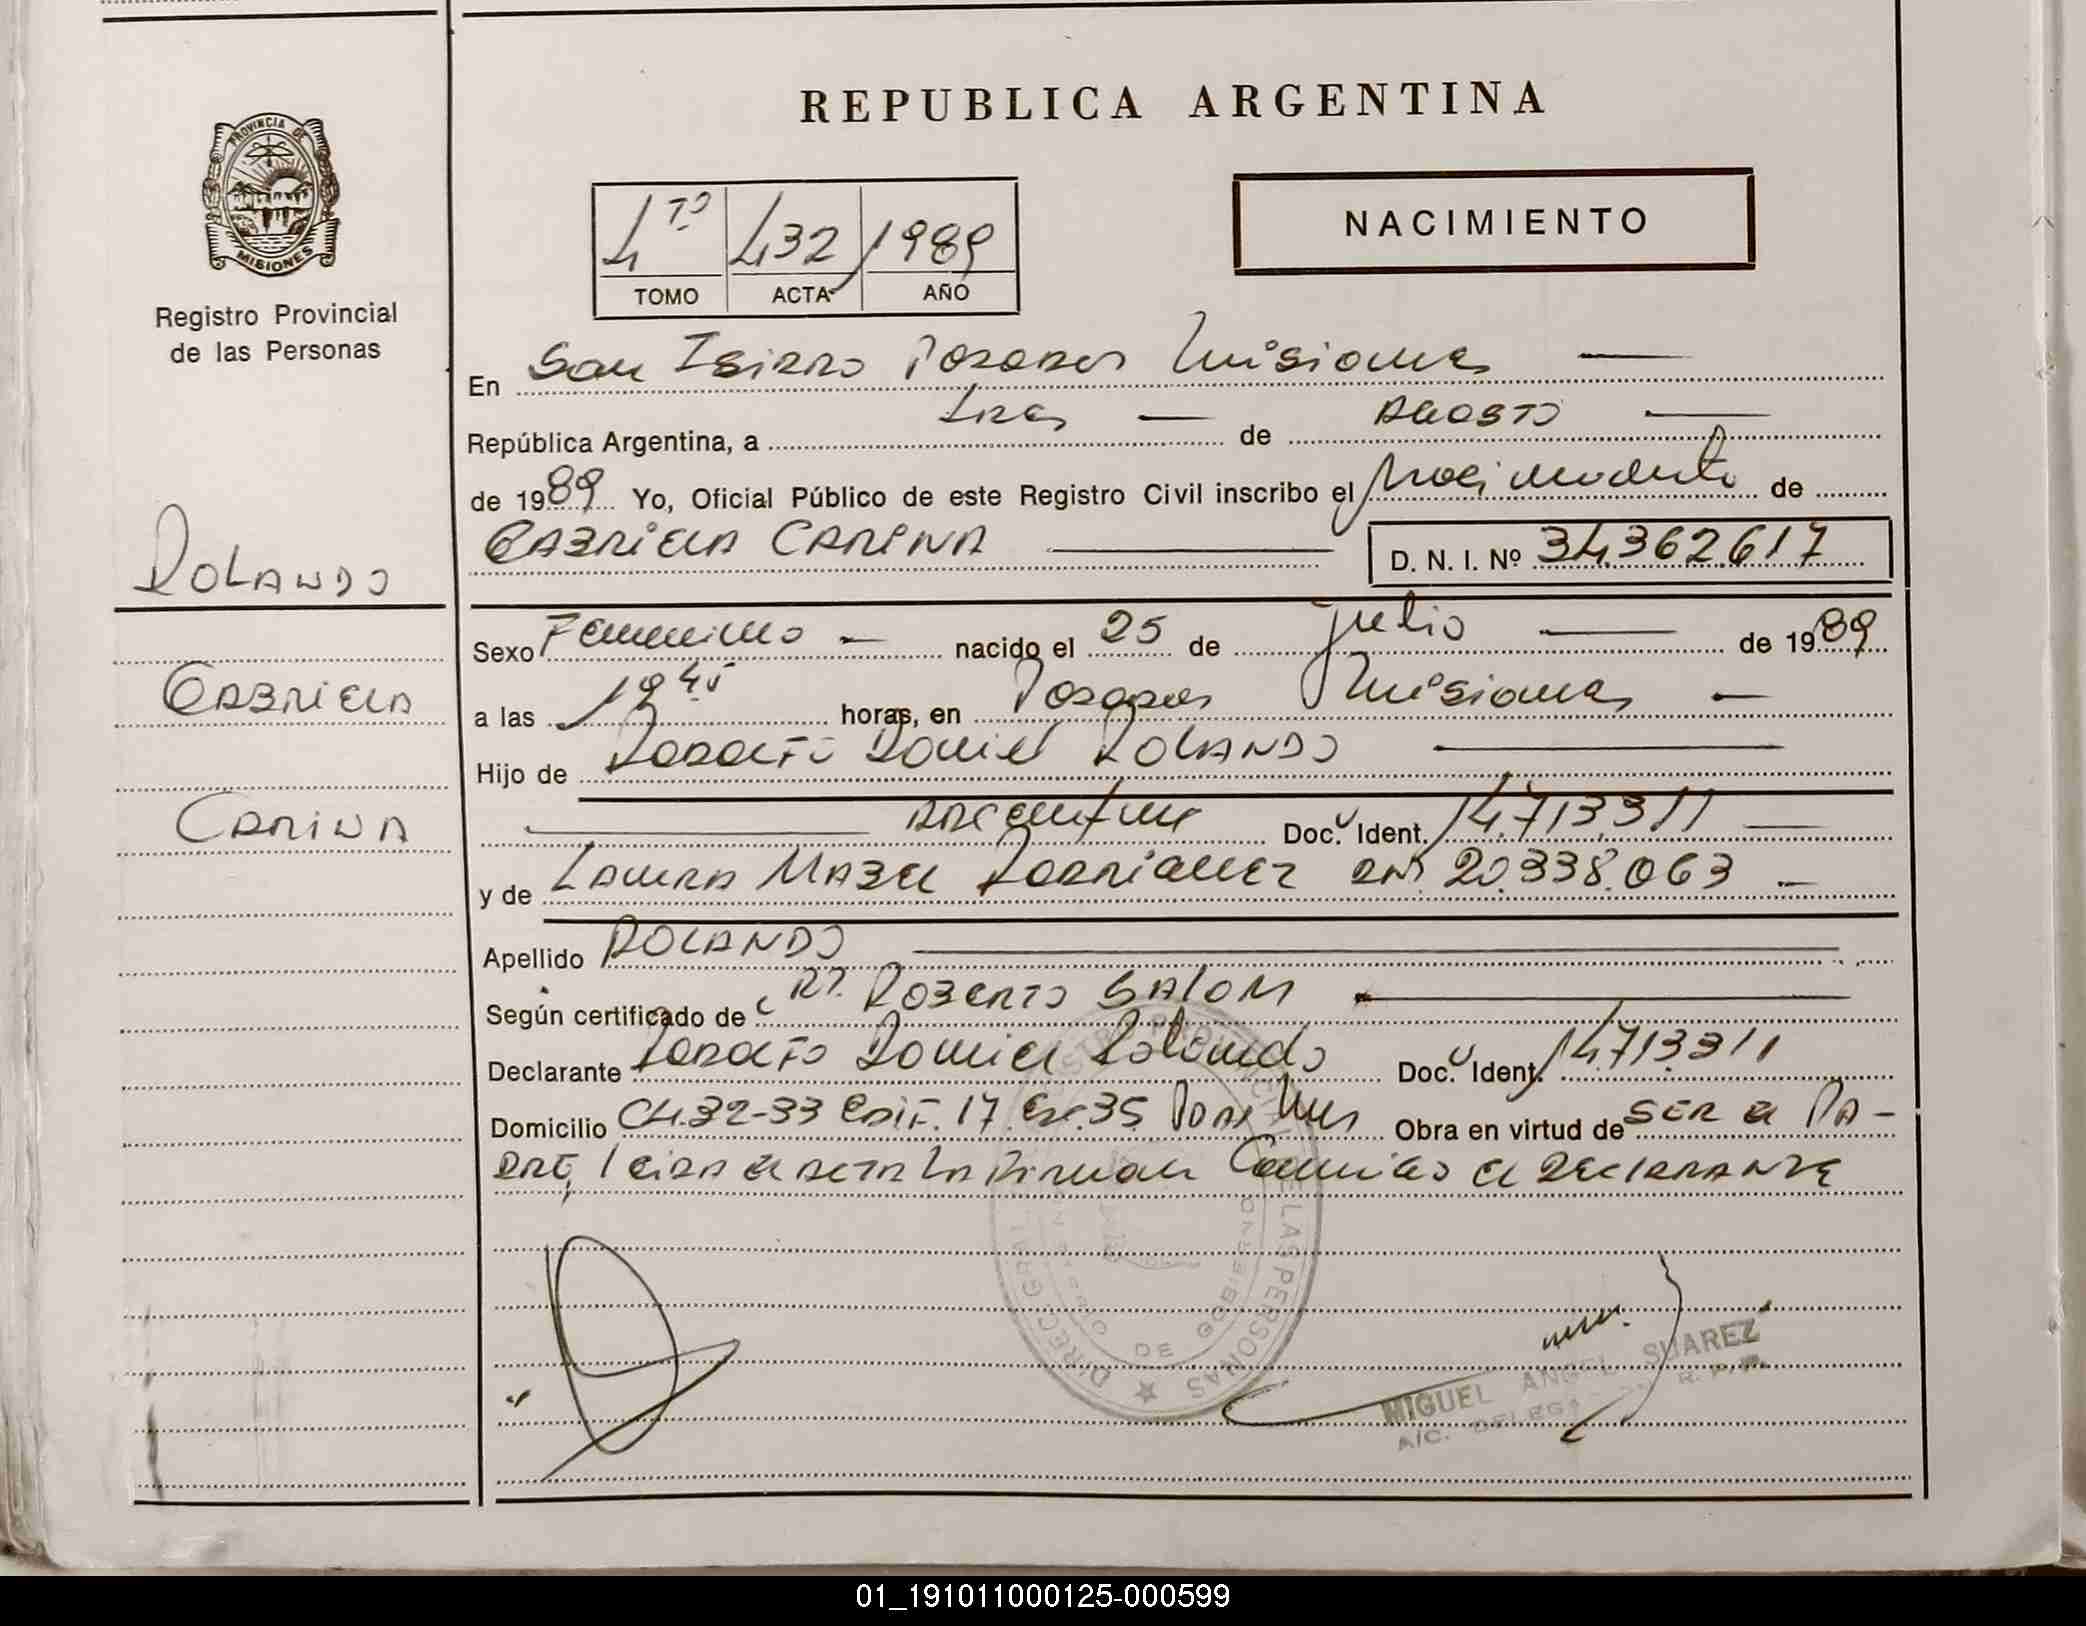 REPUBLICA ARGENTINA
PROVINCIA DE
MISIONES
Registro Provincial
de las Personas
4TO 432 1989
TOMO ACTA AÑO
NACIMIENTO
En San Isidro Posadas Misiones
República Argentina, a tres de Agosto
de 1989 Yo, Oficial Público de este Registro Civil inscribo el Nacimiento de
GABRIELA CARINA D. N. I. Nº 34.362.617
ROLANDO
GABRIELA
CARINA
Sexo Femenino nacido el 25 de julio de 1989
a las 19 45 horas, en Posadas Misiones
Hijo de Rodolfo Daniel ROLANDO
Argentino Doc. Ident. 14.713.311
y de Laura Mabel Rodriguez DNI. 20.338.063
Apellido ROLANDO
Según certificado de Roberto Salom
Declarante Rodolfo Daniel Rolando Doc. Ident. 14.713.311
Domicilio CH.32-33 Edif. 17 Esc.35 Pdas Mnes Obra en virtud de ser el Pa-
dre, leida el acta la firman Conmigo el Declarante
DIREC. GRAL. REGISTRO PROVINCIAL DE LAS PERSONAS
DE GOBIERNO
MIGUEL ANGEL SUAREZ
A/C. DELEG R. P. P.
01_191011000125-000599